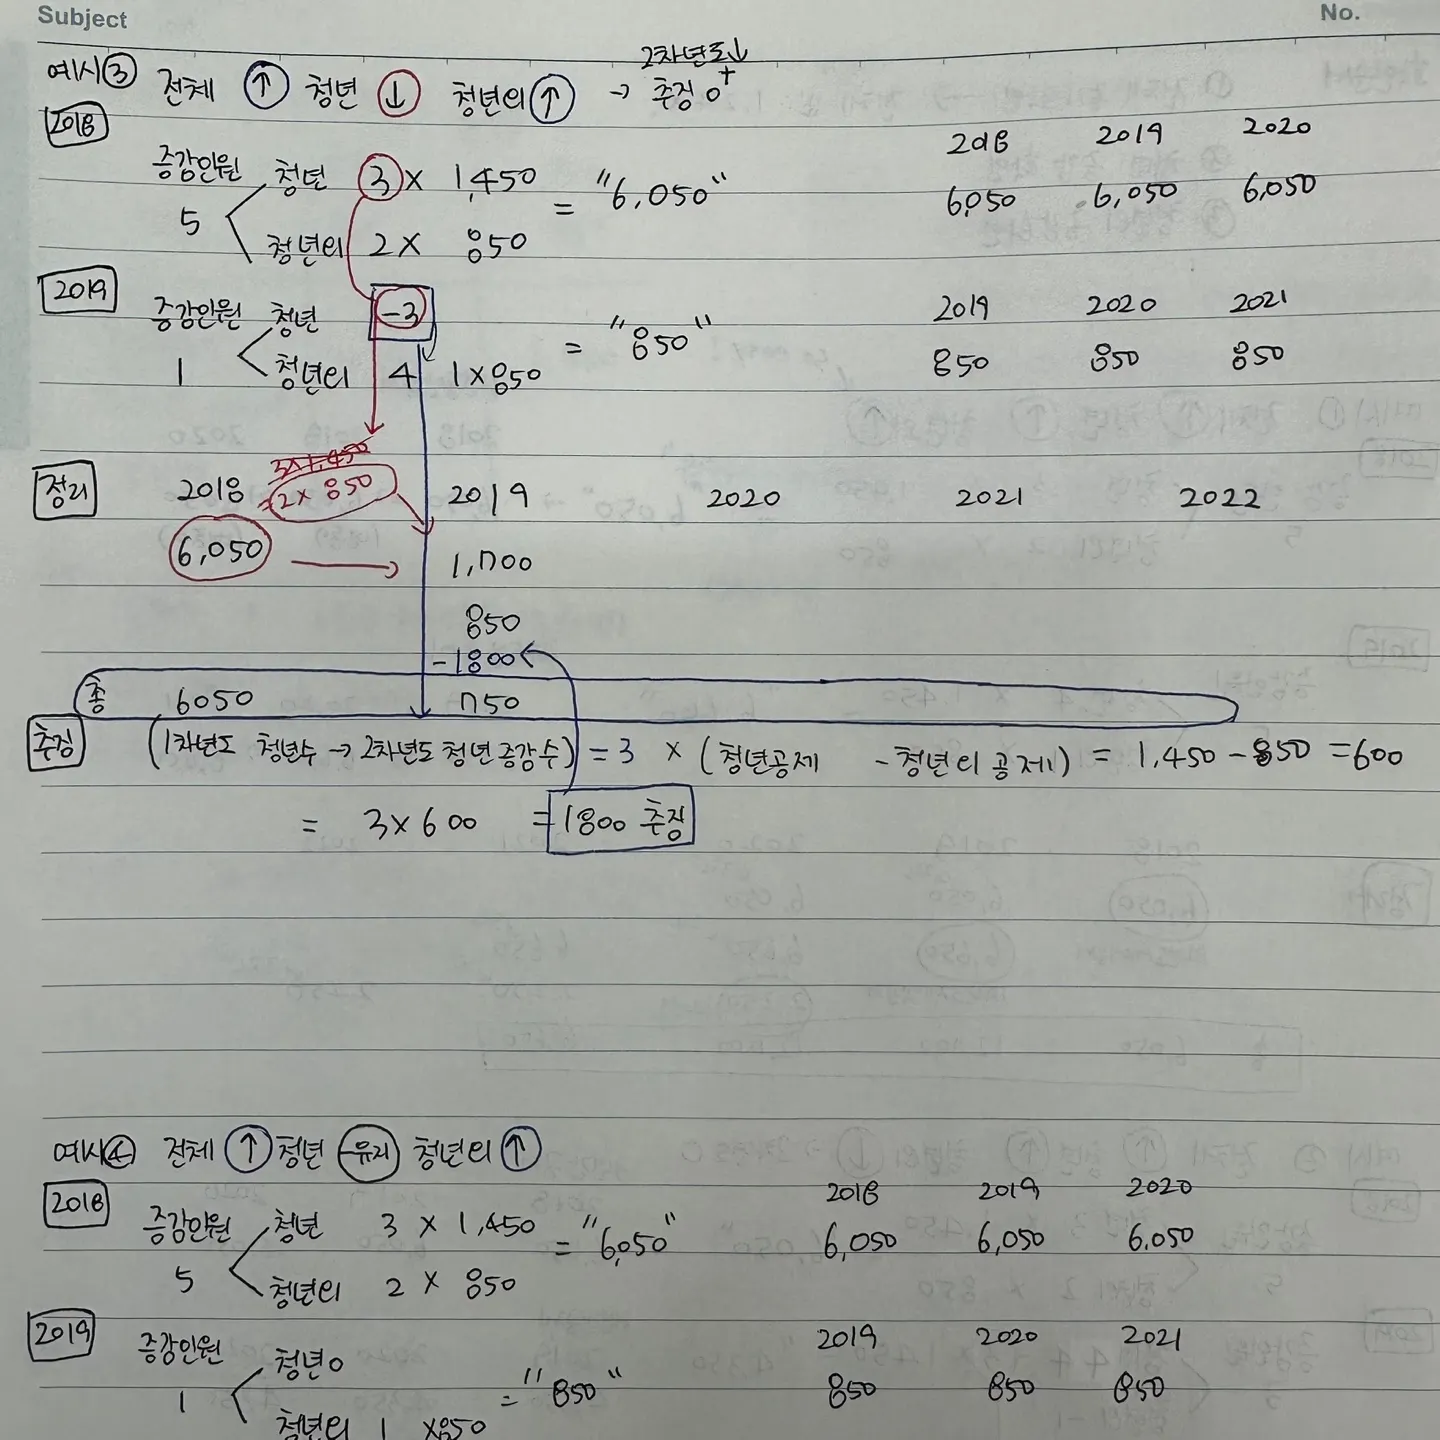 Subject No.
2차년도↓
예시③ 전체 ↑ 청년 ↓ 청년외 ↑ → 추징 0⁺
2018
2018 2019 2020
증감인원 청년 3 × 1,450
= "6,050" 6,050 6,050 6,050
5 청년외 2 × 850
2019
2019 2020 2021
증감인원 청년 -3
= "850" 850 850 850
1 청년외 4 1×850
3×1,450
정리 2018 =2× 850 2019 2020 2021 2022
6,050 → 1,700
850
-1800
총 6050 750
추징 (1차년도 청년수 → 2차년도 청년증감수) = 3 × (청년공제 - 청년외 공제) = 1,450 - 850 = 600
= 3×600 = 1800 추징
예시④ 전체 ↑ 청년 -유지 청년외 ↑
2018
2018 2019 2020
증감인원 청년 3 × 1,450
= "6,050" 6,050 6,050 6,050
5 청년외 2 × 850
2019
2019 2020 2021
증감인원 청년 0
= "850" 850 850 850
1 청년외 1 ×850